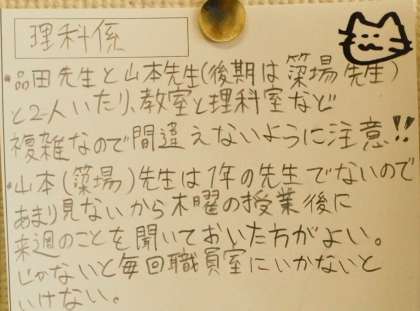 理科係
・品田先生と山本先生(後期は築場先生)
と2人いたり、教室と理科室など
複雑なので間違えないように注意!!
・山本(築場)先生は1年の先生でないので
あまり見ないから木曜の授業後に
来週のことを聞いておいた方がよい。
じゃないと毎回職員室にいかないと
いけない。